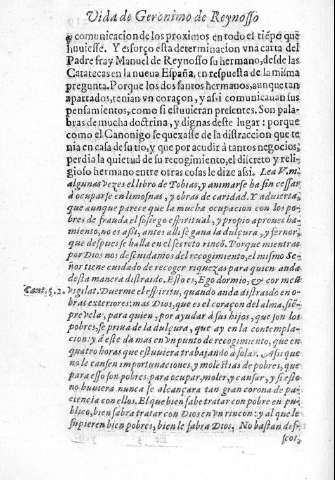 Vida de Geronimo de Reynosso
y comunicacion de los proximos en todo el tiẽpo que
huuiesse. Y esforço esta determinacion vna carta del
Padre fray Manuel de Reynosso su hermano, desde las
Catatecas en la nueua España, en respuesta de la misma
pregunta. Porque los dos santos hermanos, aunque tan
apartados, tenian vn coraçon, y assi comunicauan sus
pensamientos, como si estuuieran presentes. Son pala-
bras de mucha doctrina, y dignas deste lugar: porque
como el Canonigo se quexasse de la distraccion que te
nia en casa de su tio, y que por acudir à tantos negocios,
perdia la quietud de su recogimiento, el discreto y reli-
gioso hermano entre otras cosas le dize assi. Lea V.m.
algunas vezes el libro de Tobias, y animarse ha sin cessar
à ocuparse en limosnas, y obras de caridad. Y aduierta,
que aunque parece que la mucha ocupacion con los po-
bres defrauda el sosiego espiritual, y propio aprouecha-
miento, no es assi, antes alli se gana la dulçura, y feruor,
que despues se halla en el secreto rincõ. Porque mientras
por Dios nos descuidamos del recogimiento, el mismo Se-
ñor tiene cuidado de recoger riquezas para quien anda
desta manera distraido. Esto es, Ego dormio, & cor meũ
Cant. 5. 2. vigilat. Duerme el espiritu, quando anda distraido en
obras exteriores: mas Dios, que es el coraçon del alma, siẽ-
pre vela, para quien, por ayudar à sus hijos, que son los
pobres, se priua de la dulçura, que ay en la contempla-
cion: y à este da mas en vn punto de recogimiento, que en
quatro horas que estuuiera trabajando à solas. Assi que
no le cansen importunaciones, y molestias de pobres, que
para esso son pobres, para ocupar, moler, y cansar, y si esto
no huuiera nunca se alcançara tan gran corona de pa-
ciencia con ellos. El que bien sabe tratar con pobre en pu-
blico, bien sabra tratar con Dios en vn rincon: y al que le
supieren bien pobres, bien le sabra Dios. No bastan dis-